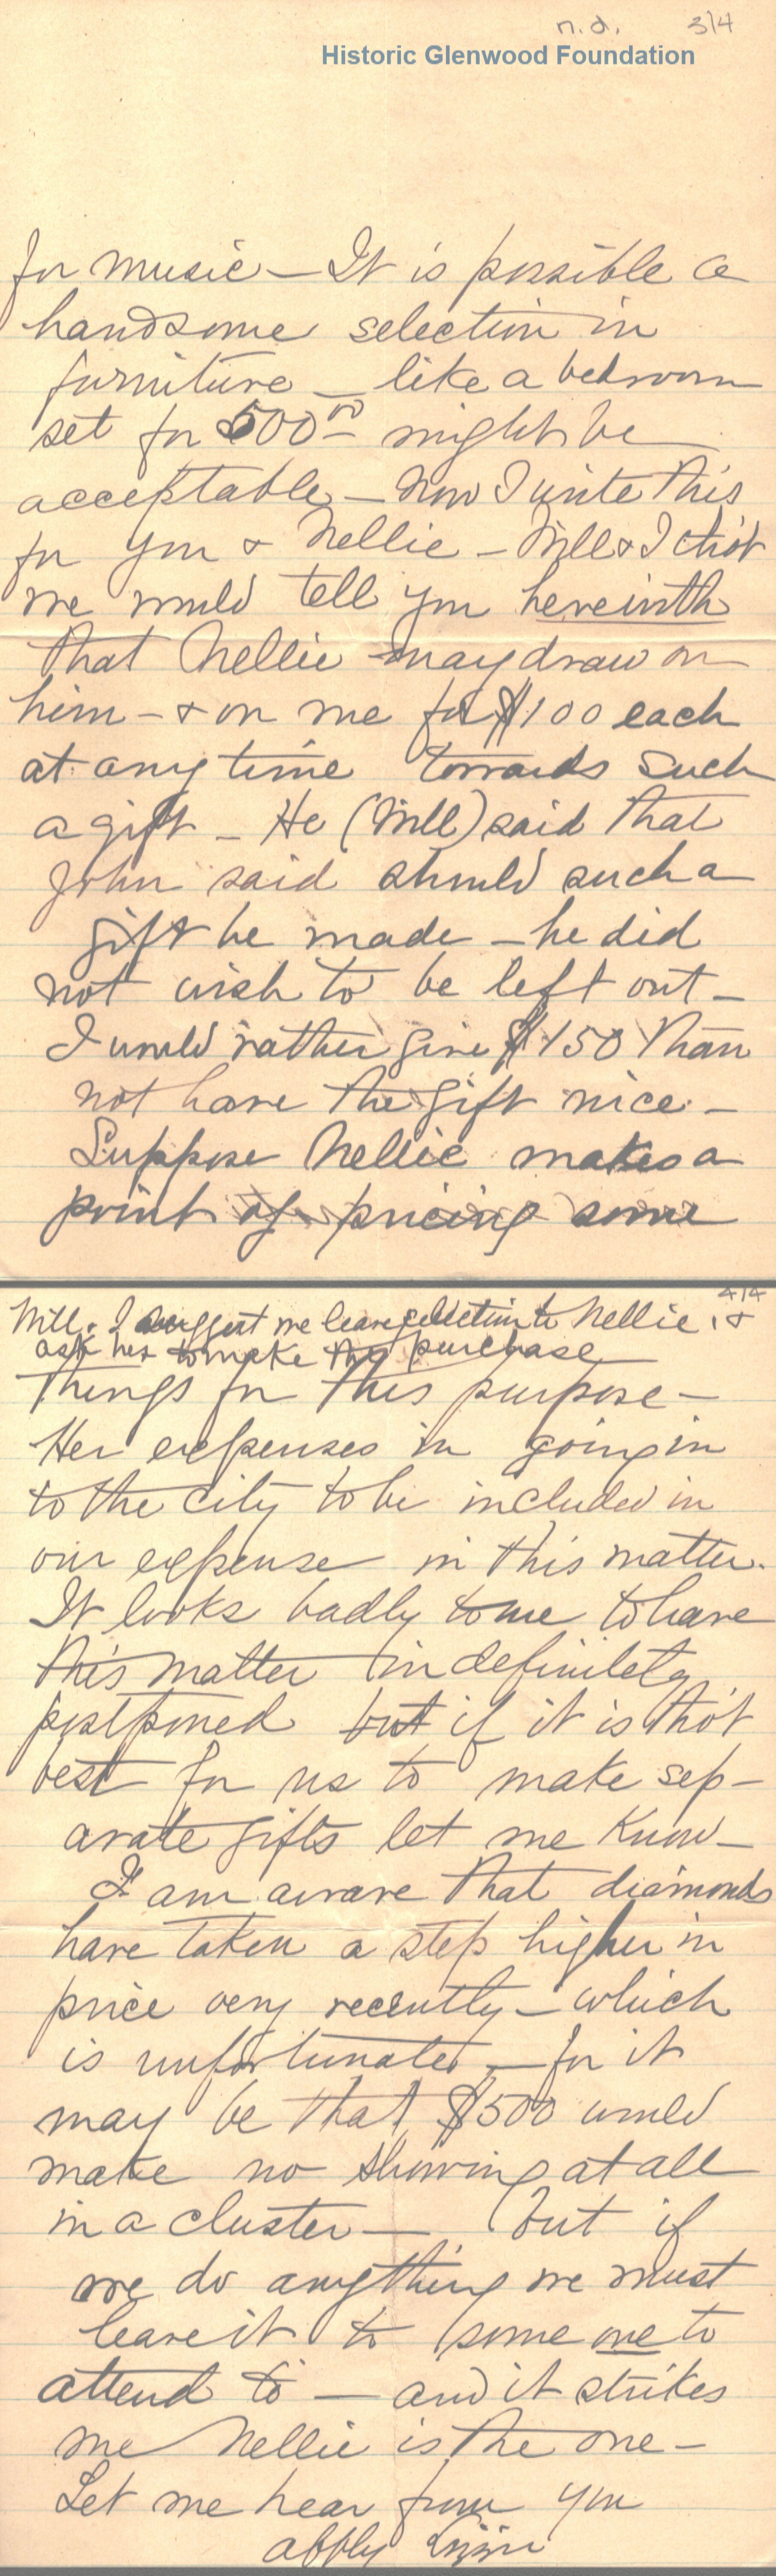 n.d. 3/4
Historic Glenwood Foundation
for music – It is possible a
handsome selection in
furniture – like a bedroom
set for 500.00 – might be
acceptable – Now I write this
for you & Nellie – Will & I tho't
we would tell you herewith
that Nellie may draw on
him – & on me for $100 each
at any time towards such
a gift – He (Will) said that
John said should such a
gift be made – he did
not wish to be left out –
I would rather give $150 than
not have the gift nice –
Suppose Nellie makes a
point of pricing some
4/4
Will & I suggest we leave selection to Nellie, &
ask her to make the purchase
things for this purpose –
Her expenses in going in
to the city to be included in
our expense in this matter.
It looks badly to me to have
this matter indefinitely
postponed but if it is tho't
best for us to make sep-
arate gifts let me know –
I am aware that diamonds
have taken a step higher in
price very recently – which
is unfortunate – for it
may be that $500 would
make no showing at all
in a cluster – but if
we do anything we must
leave it to some one to
attend to – and it strikes
me Nellie is the one –
Let me hear from you
affly